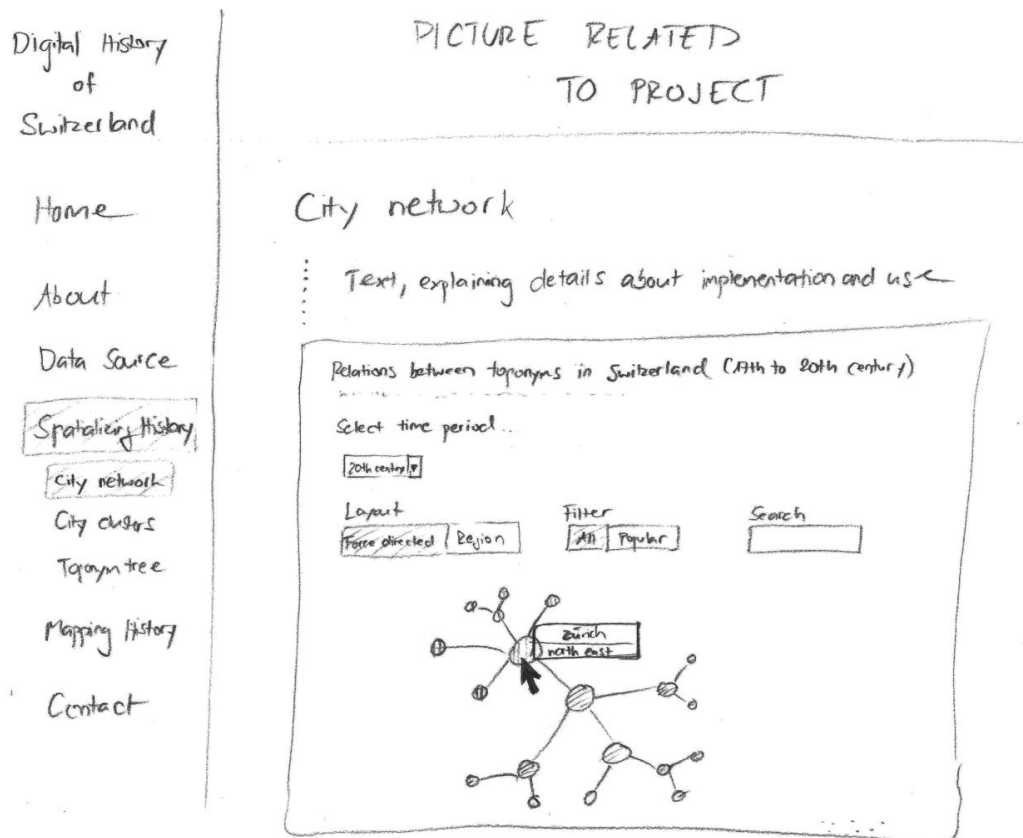 Digital History
of
Switzerland
Home
About
Data Source
Spatializing History
City network
City clusters
Toponym tree
Mapping History
Contact
PICTURE RELATED
TO PROJECT
City network
Text, explaining details about implementation and use
Relations between toponyms in Switzerland (17th to 20th century)
Select time period..
20th century
Layout
Force directed Region
Filter
All Popular
Search
Zürich
north east